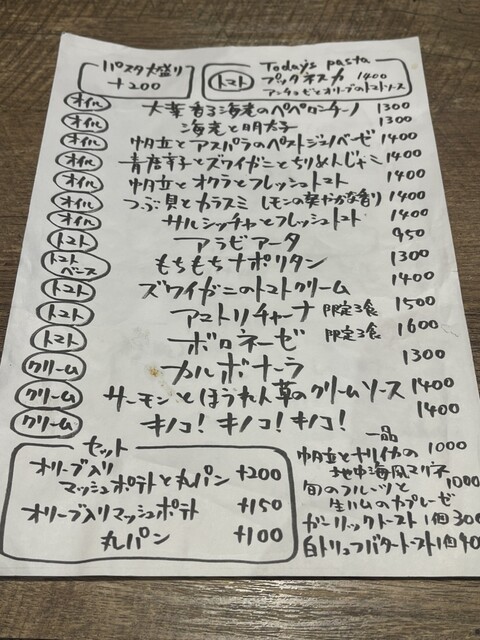 パスタ大盛り
+200
Today's pasta
トマト プッタネスカ 1400
アンチョビとオリーブのトマトソース
オイル 大葉香る海老のペペロンチーノ 1300
オイル 海老と明太子 1300
オイル 帆立とアスパラのペストジェノベーゼ 1400
オイル 青唐辛子とズワイガニとちりめんじゃこ 1400
オイル 帆立とオクラとフレッシュトマト 1400
オイル つぶ貝とカラスミ(レモンの爽やかな香り) 1400
オイル サルシッチャとフレッシュトマト 1400
トマト アラビアータ 950
トマトベース もちもちナポリタン 1300
トマト ズワイガニのトマトクリーム 1400
トマト アマトリチャーナ 限定3食 1500
トマト ボロネーゼ 限定3食 1600
クリーム カルボナーラ 1300
クリーム サーモンとほうれん草のクリームソース 1400
クリーム キノコ!キノコ!キノコ! 1400
セット
オリーブ入り
マッシュポテトと丸パン +200
オリーブ入りマッシュポテト +150
丸パン +100
一品
帆立とヤリイカの 1000
地中海風マリネ
旬のフルーツと 1000
生ハムのカプレーゼ
ガーリックトースト 1個 300
白トリュフバタートースト 1個